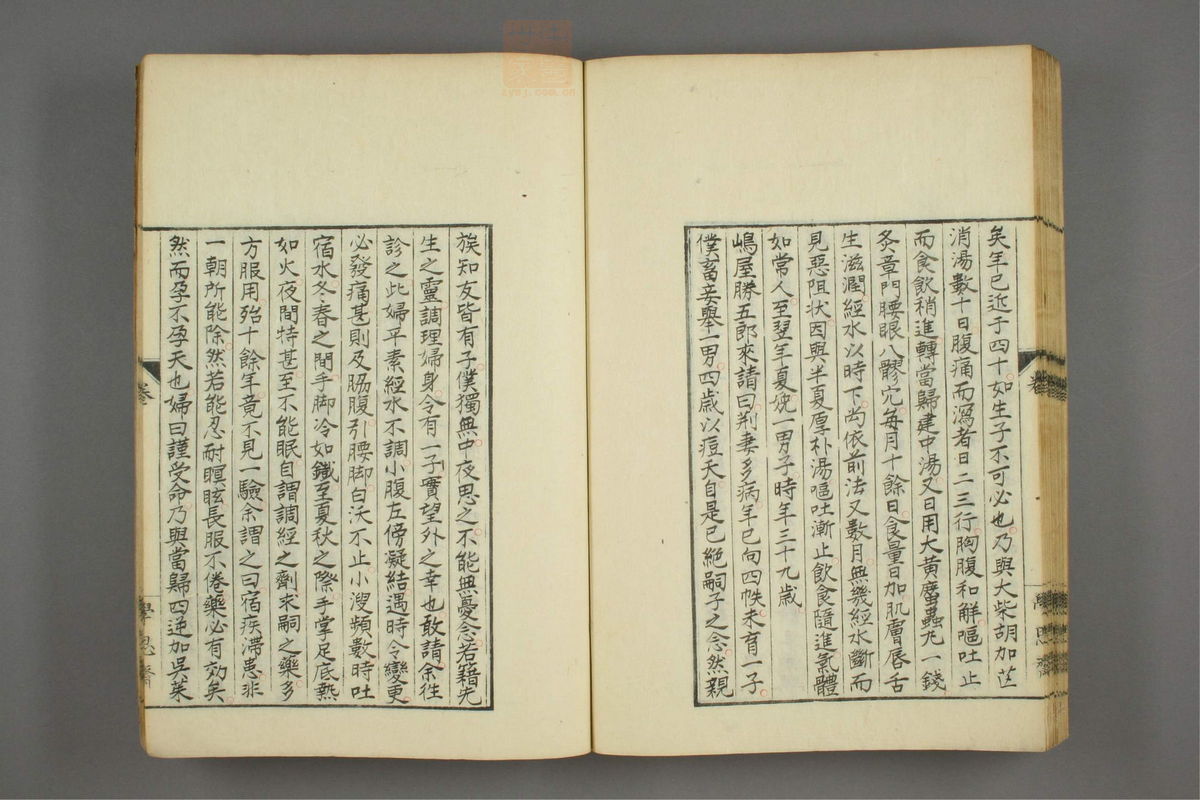 矣年已近于四十如生子不可必也乃與大柴胡加茳
消湯數十日腹痛而瀉者日二三行胸腹和解嘔吐止
而食飲稍進轉當歸建中湯又日用大黃䗪蟲丸一錢
灸章門腰眼八髎穴每月十餘日食量日加肌膚唇舌
生滋潤經水以時下尚依前法又數月無幾經水斷而
見惡阻状因與半夏厚朴湯嘔吐漸止飲食隨進氣體
如常人至翌年夏娩一男子時年三十九歲
嶋屋勝五郎來請曰荆妻多病年已向四帙未育一子
僕畜妾舉一男四歲以痘夭自是已絕嗣子之念然親
族知友皆有子僕獨無中夜思之不能無憂念若籍先
生之靈調理婦身令有一子實望外之幸也敢請余往
診之此婦平素經水不調小腹左傍凝結遇時令變更
必發痛甚則及脇腹引腰脚白沃不止小溲頻數時吐
宿水冬春之間手脚冷如鐵至夏秋之際手掌足底熱
如火夜間特甚至不能眠自謂調經之劑求嗣之藥多
方服用殆十餘年竟不見一驗余謂之曰宿疾滯患非
一朝所能除然若能忍耐瞑眩長服不倦藥必有効矣
然而孕不孕天也婦曰謹受命乃與當歸四逆加吳茱
卷
學思齋
zysj.com.cn